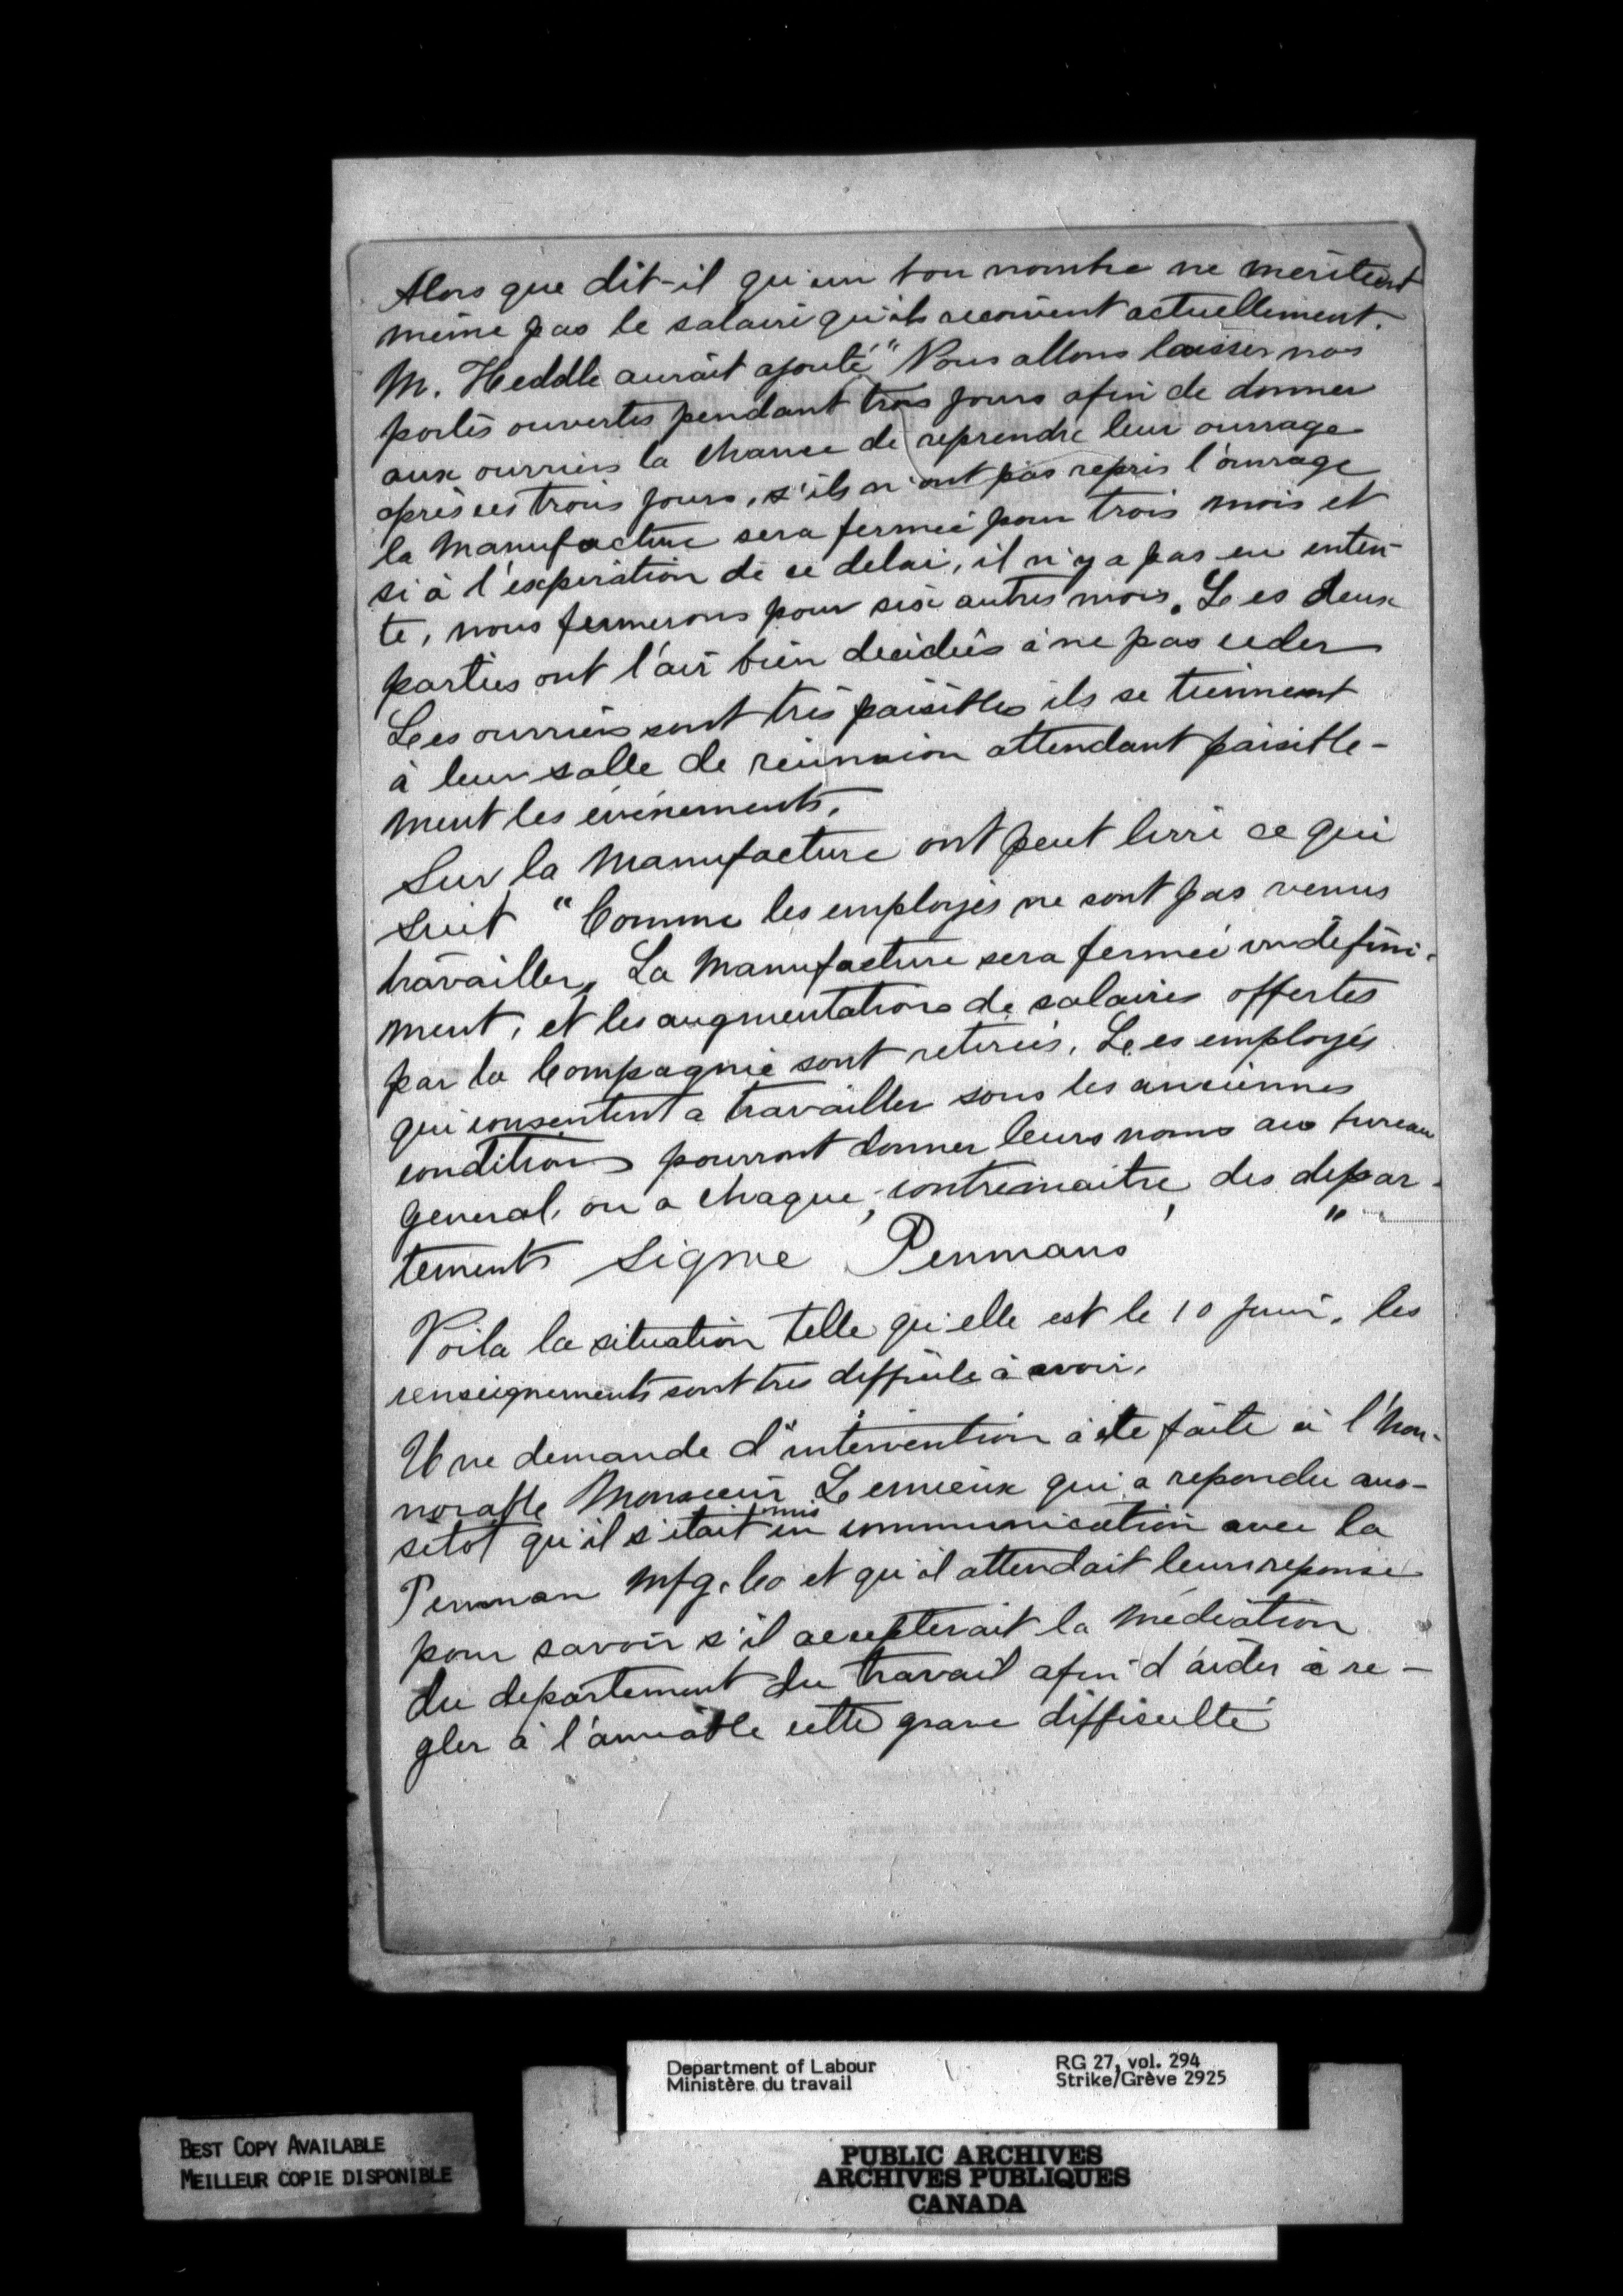 Alors que dit-il qu'un bon nombre ne méritent
même pas le salaire qu'ils reçoivent actuellement.
M. Heddle aurait ajouté "Nous allons laisser nos
portes ouvertes pendant trois jours afin de donner
aux ouvriers la chance de reprendre leur ouvrage
après ces trois jours, s'ils n'ont pas repris l'ouvrage
la Manufacture sera fermée pour trois mois et
si à l'expiration de ce delai, il n'y a pas eu enten-
te, nous fermerons pour six autres mois. Les deux
parties ont l'air bien decidés à ne pas ceder
Les ouvriers sont très paisibles ils se tiennent
à leur salle de reunnion attendant paisible-
ment les événements.
Sur la Manufacture ont peut lirre ce qui
suit "Comme les employés ne sont pas venus
travailler, La Manufacture sera fermée indéfini-
ment, et les augmentations de salaires offertes
par la Compagnie sont retirées. Les employés
qui consentent a travailler sous les anciennes
conditions pourront donner leurs noms au bureau
general, ou a chaque, contremaitre, des depar-
tements Signe Penmans "
Voila la situation telle qu'elle est le 10 juin, les
renseignements sont tres difficile à avoir.
Une demande d'intervention a ete faite à l'hon-
norable Monsieur Lemieux qui a repondu aus-
sitot qu'il s'était mis en communication avec la
Penman Mfg. Co et qu'il attendait leur reponse
pour savoir s'il accepterait la médiation
du departement du travail afin d'aider à re-
gler à l'amiable cette grave difficulté
Department of Labour
Ministère du travail
RG 27, vol. 294
Strike/Grève 2925
BEST COPY AVAILABLE
MEILLEUR COPIE DISPONIBLE
PUBLIC ARCHIVES
ARCHIVES PUBLIQUES
CANADA